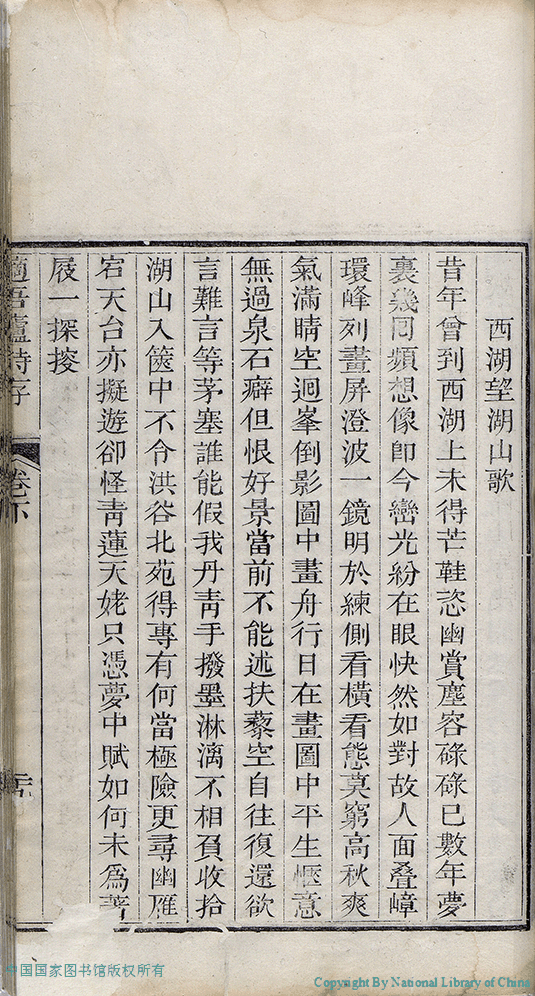 西湖望湖山歌
昔年曾到西湖上未得芒鞋恣幽賞塵容碌碌已數年夢
裏幾回頻想像即今巒光紛在眼快然如對故人面叠嶂
環峰列畫屏澄波一鏡明於練側看橫看態莫窮高秋爽
氣滿晴空迴峯倒影圖中畫舟行日在畫圖中平生愜意
無過泉石癖但恨好景當前不能述扶藜空自往復還欲
言難言等茅塞誰能假我丹青手撥墨淋漓不相負收拾
湖山入篋中不令洪谷北苑得專有何當極險更尋幽雁
宕天台亦擬遊卻怪青蓮天姥只憑夢中賦如何未為著
屐一探搜
適吾廬詩存
卷下
中国国家图书馆版权所有
Copyright By National Library of China